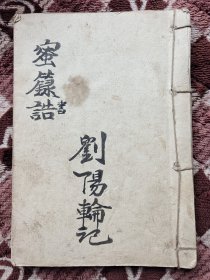 蜜籙誥書
劉陽輪記